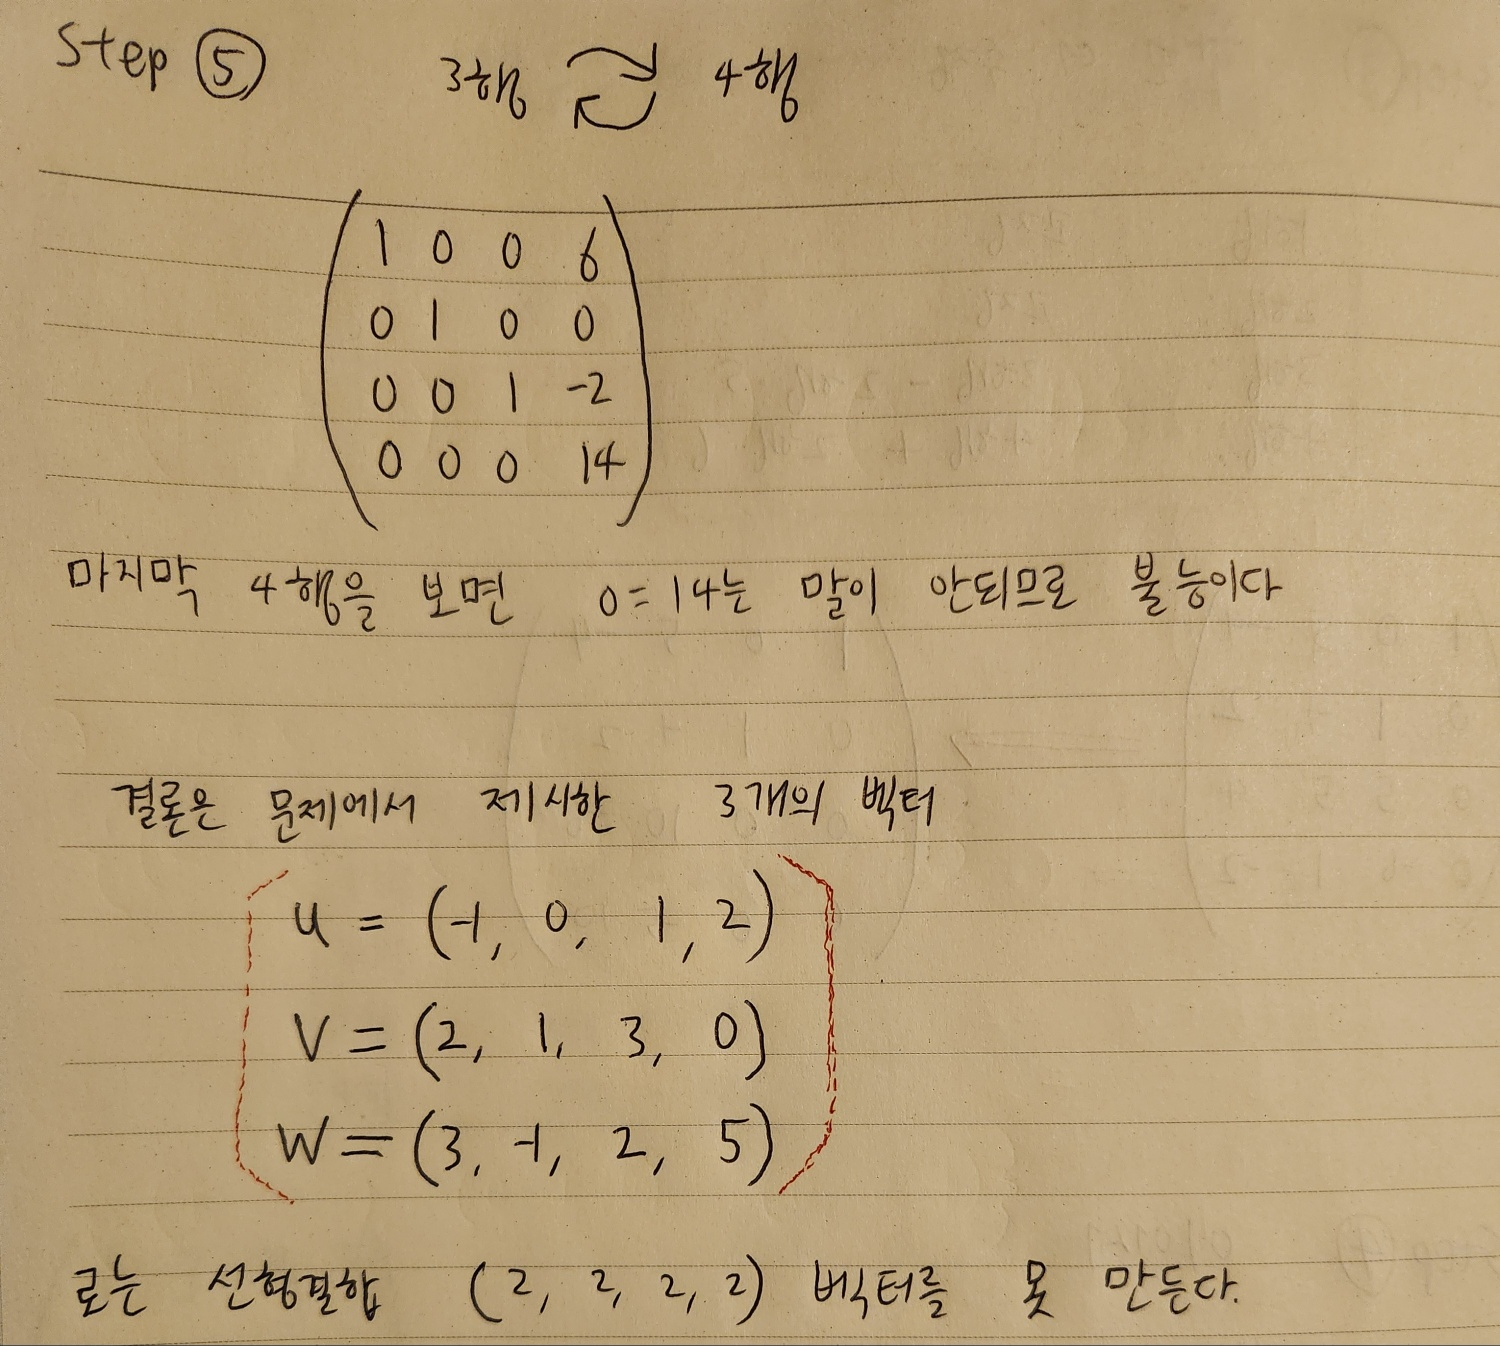 Step ⑤ 3행 4행
1 0 0 6
0 1 0 0
0 0 1 -2
0 0 0 14
마지막 4행을 보면 0=14는 말이 안되므로 불능이다
결론은 문제에서 제시한 3개의 벡터
u = (-1, 0, 1, 2)
V = (2, 1, 3, 0)
W = (3, -1, 2, 5)
로는 선형결합 (2, 2, 2, 2) 벡터를 못 만든다.